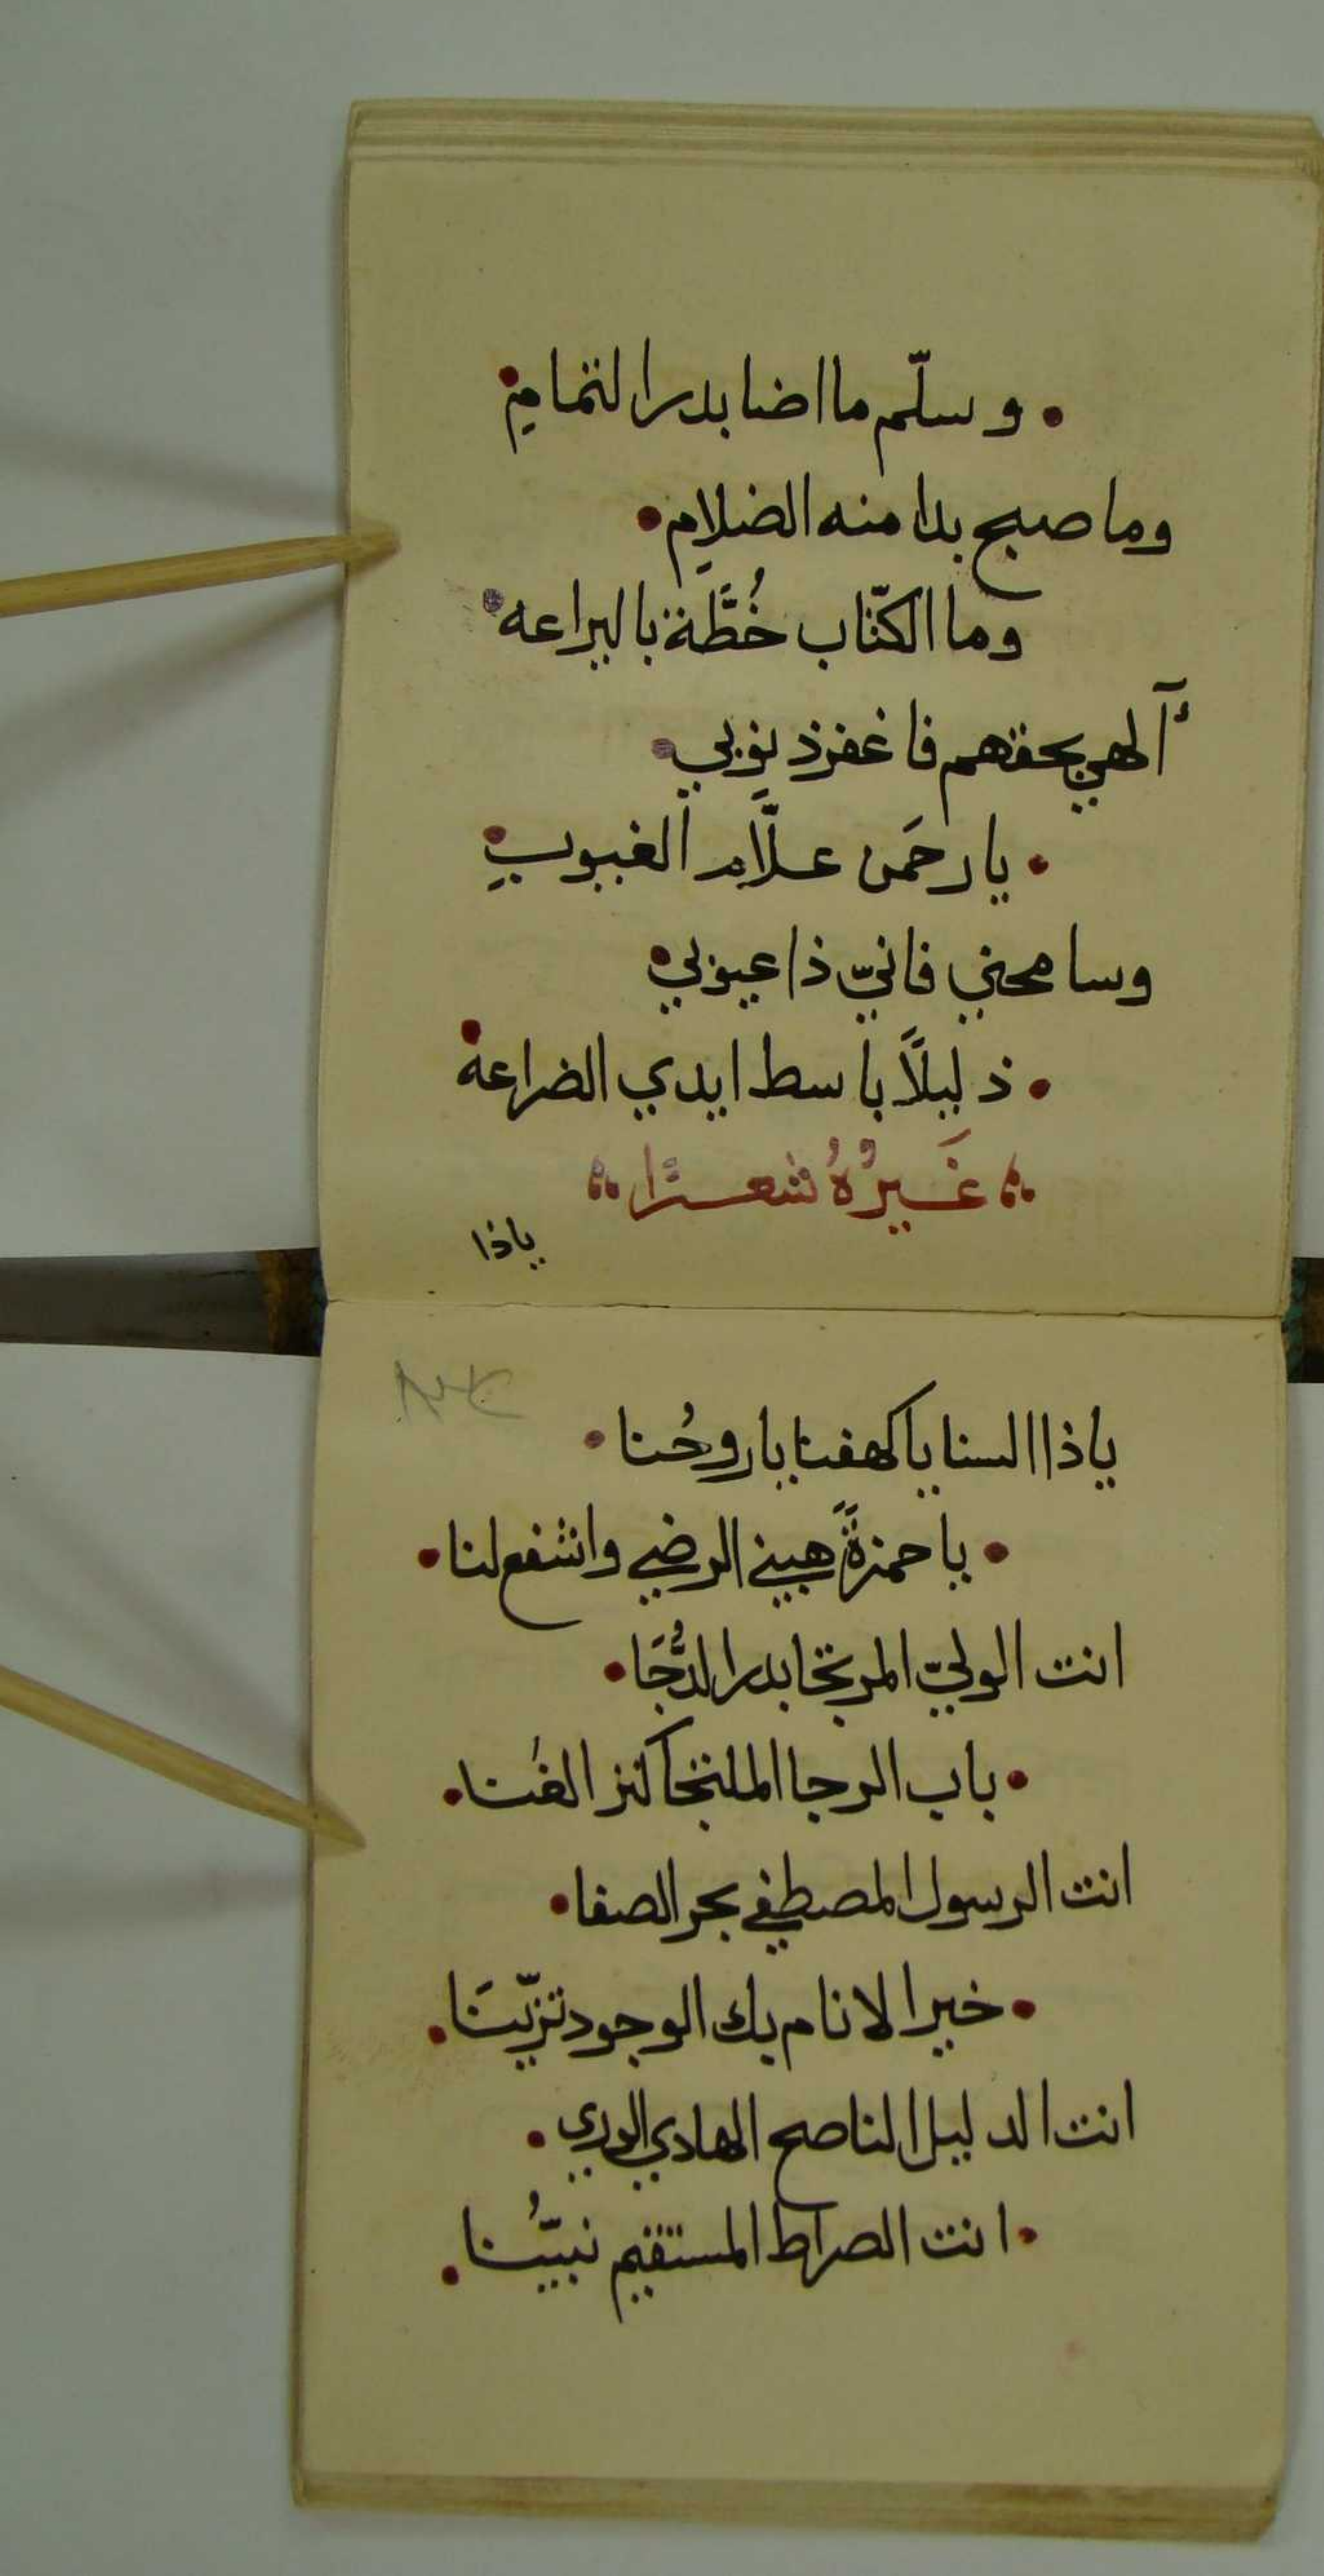 وسلّم ما اضا بدر التمامِ
وما صبح بدا منه الضلامِ
وما الكتّاب خُطَّة باليراعه
ألهي بحقهم فاغفر ذنوبي
يا رحمَن علَّام الغيوبِ
وسامحني فانيّ ذا عيوبي
ذليلاً باسط ايدي الضراعه
غَيرُهُ شعرًا
ياذا
ياذا السنا يا كهفنا يا روحُنا
يا حمزةً هبني الرضي واشفع لنا
انت الوليّ المرتجا بدر الدُّجَا
باب الرجا الملتجا كنز الغنا
انت الرسول المصطفي بحر الصفا
خير الانام بك الوجود تزيّنَا
انت الدليل الناصح الهادي الوري
انت الصراط المستقيم نبيّنُا